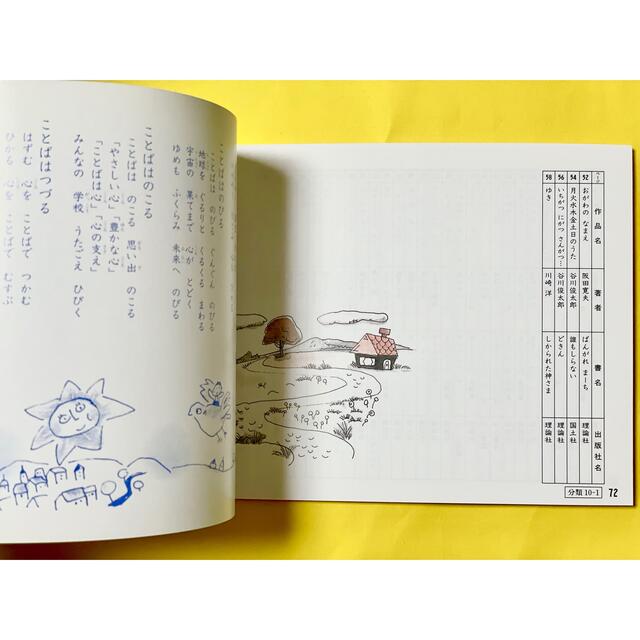 ことばはのびる
ことばは のびる ぐんぐん のびる
地球を ぐるりと くるくる まわる
宇宙の 果てまで 心が とどく
ゆめも ふくらみ 未来へ のびる
ことばはのこる
ことばは のこる 思い出 のこる
「やさしい心」「豊かな心」
「ことばは心」「心の支え」
みんなの 学校 うたごえ ひびく
ことばはつづる
はずむ 心を ことばで つかむ
ひかる 心を ことばで むすぶ
ページ 作品名 著者 書名 出版社名
52 おがわの なまえ 阪田寛夫 ばんがれ まーち 理論社
54 月火水木金土日のうた 谷川俊太郎 誰もしらない 国土社
56 いちがつ にがつ さんがつ… 谷川俊太郎 どきん 理論社
58 ゆき 川崎洋 しかられた神さま 理論社
分類10-1
72